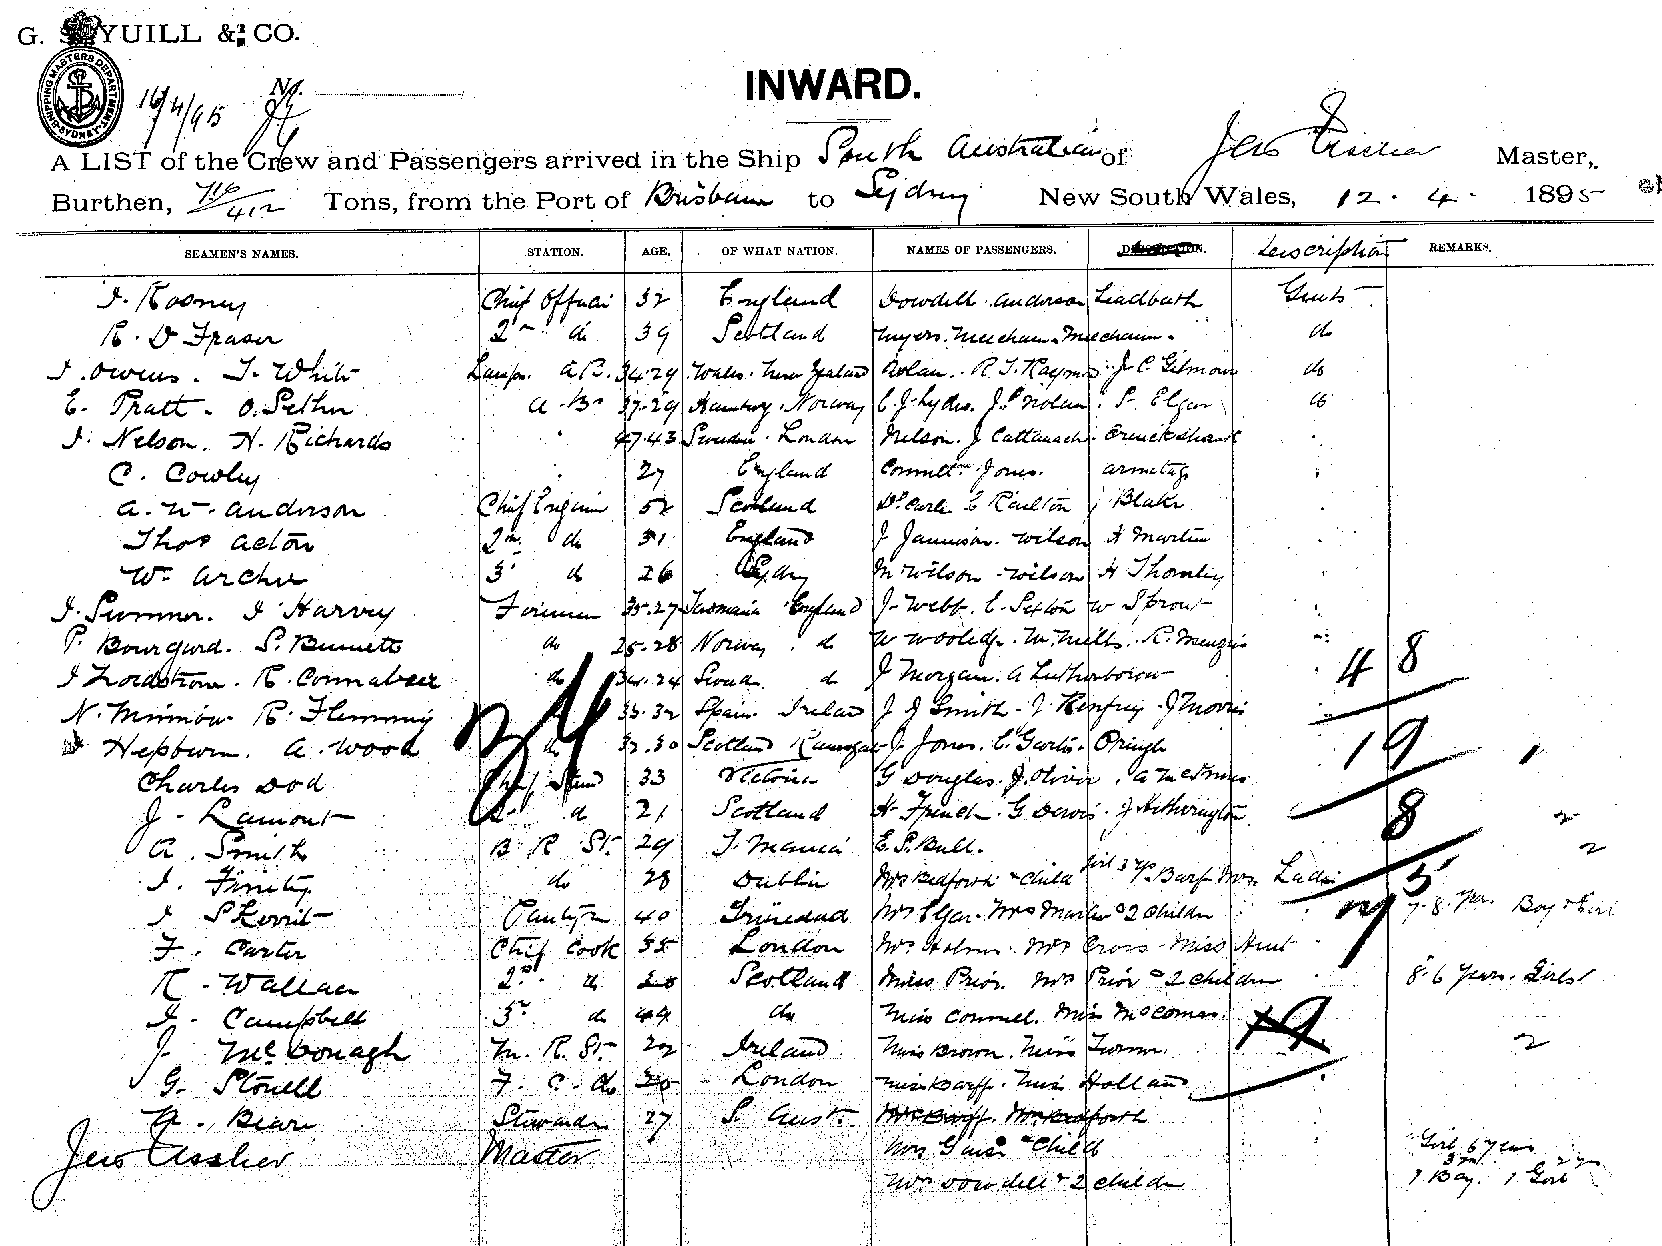 G. S. YUILL & CO.
SHIPPING MASTERS DEPARTMENT SYDNEY
16/4/95 No.
INWARD.
A LIST of the Crew and Passengers arrived in the Ship South Australian of Master,
Burthen, 716/412 Tons, from the Port of Brisbane to Sydney New South Wales, 12. 4. 1895
SEAMEN'S NAMES. STATION. AGE. OF WHAT NATION. NAMES OF PASSENGERS. Description REMARKS.
J. Rooney Chief Officer 32 England Dowdell Anderson Leadbeath Gents
R. D Fraser 2nd do 39 Scotland Myers. Meecham. Meecham. do
J. Owens. J. White Lamps. A B. 34.29 Wales. New Zealand Nolan. R. J. Raymond J C Gilmour do
E. Pratt. O. Sether A. Bs 37.29 Hamburg. Norway C. J. Lydes. J. P Nolan. S. Elgar do
J. Nelson. H. Richards 47.43 Sweden. London Nelson. J Cattanach. Cruickshank
C. Cowley 27 England Jones. Armitage
A. W. Anderson Chief Engineer 52 Scotland Dr Earle E Raulton Blake
Thos Acton 2nd do 31 England J Jamison. Wilson H Martin
W. Archer 3rd do 26 Sydney M Wilson. Wilson H Thornley
J. Sumner. J Harvey Firemen 35.27 Tasmania England J. Webb. E. Sexton W Sprout
P. Bourgard. S. Burnett do 25.28 Norway. do W Wooledge. M. Mills. R. Menzies
J Nordstrom. R. Connabeer do 34.24 Sweden do J Morgan. A Lutherborrow 48
N. Minnow. R. Flemming 35.32 Spain. Ireland J J Smith. J. Renfrey. J Morris
J Hepburn. A. Wood do 32.30 Scotland Ramsgate J. Jones. C. Curtis. Pringle 19 1
Charles Dod Chief Stewd 33 Victoria G Douglas. J. Oliver. A McInnes
J. Lamont 2nd do 21 Scotland H French. G Davis. J Hetherington 8 2
A. Smith B R St. 29 E. S. Bull. 2
J. Finity do 28 Dublin Mrs Bedforth & Child Girl 3 yrs Barff Mrs. Ladies 5
J Skerrit Pantryman 40 Trinedad Mrs Elgar. Mrs Martin & 2 Children 7. 8. yrs. Boy & Girl
F. Carter Chief Cook 38 London Mrs Holmes. Mrs Cross. Miss Hunt
R. Wallace 2nd do Scotland Miss Prior. Mrs Prior & 2 Children 8. 6 years. Girls
J. Campbell 3rd do 49 do Miss Connell. Miss McComas. 19
J. McDonagh M. R. St. 22 Ireland Miss Brown. Miss Turner. 2
G. Stonell F. C. do 20 London Miss Barff. Miss Holland
A. Bear Stewardess 27 S. Aust. Mrs Barff Mrs Bedforth
Master Mrs & Child Girl 6 years
Mrs Dowdell & 2 Children 1 Boy. 1 Girl